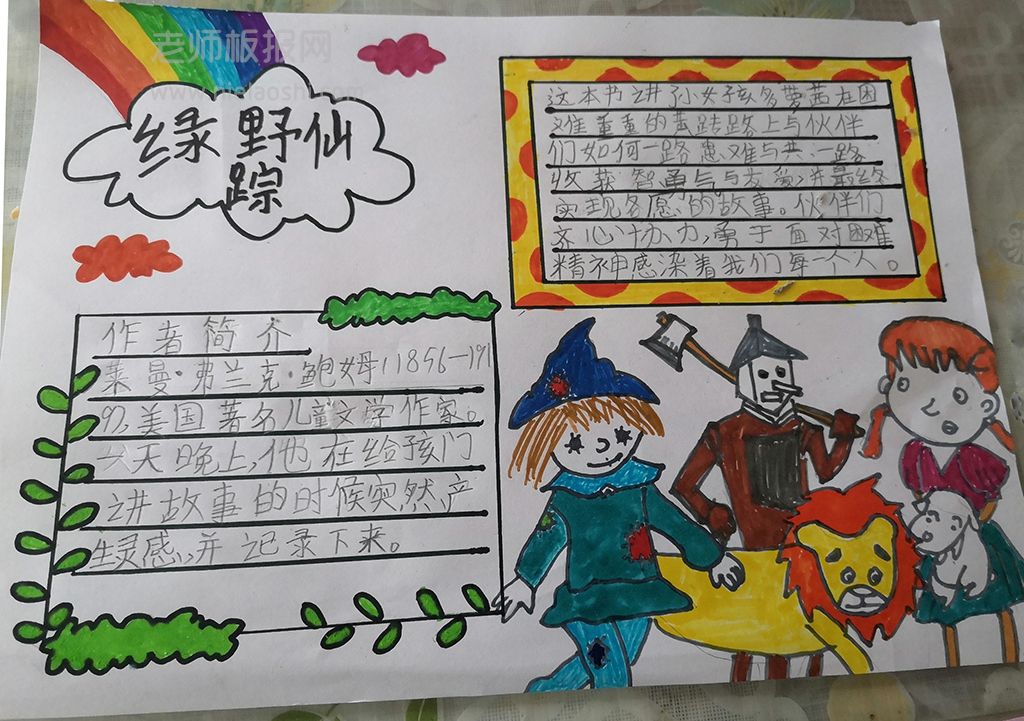 老师板报网
绿野仙
踪
这本书讲了小女孩多萝茜在困
难重重的黄砖路上与伙伴
们如何一路患难与共、一路
收获智勇气与友爱,并最终
实现各愿的故事。伙伴们
齐心协力,勇于面对困难
精神感染着我们每一个人。
作者简介
莱曼·弗兰克·鲍姆(1856—191
9),美国著名儿童文学作家。
一天晚上,他在给孩门
讲故事的时候突然产
生灵感,并记录下来。